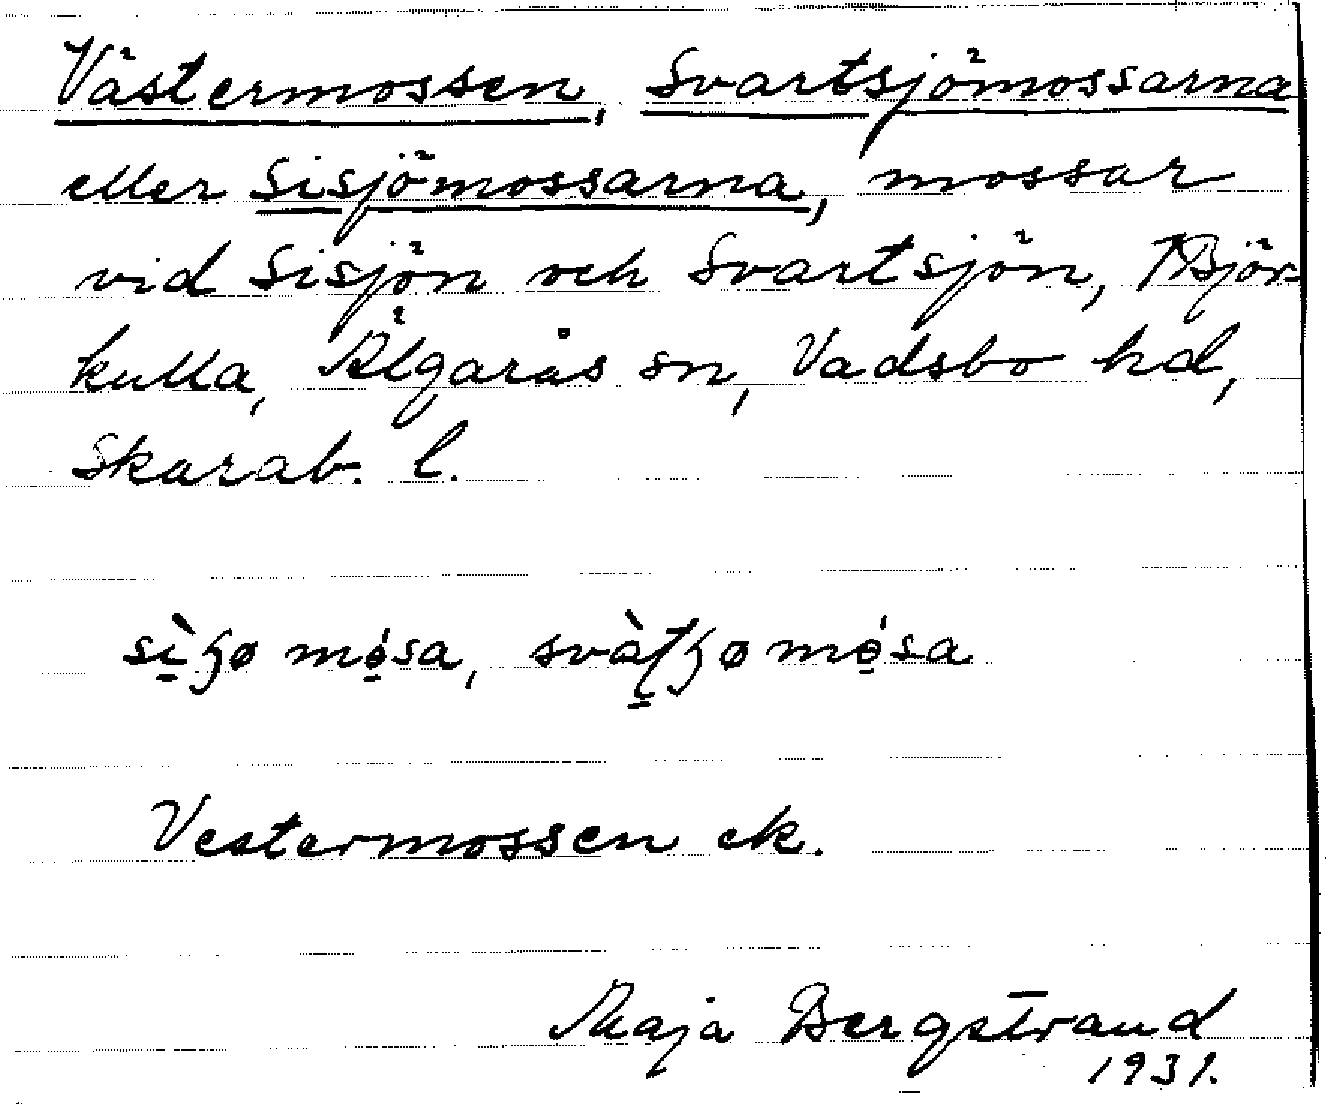 Västermossen, Svartsjömossarna
eller Sisjömossarna, mossar
vid Sisjön och Svartsjön, Björ
kulla, Älgarås sn, Vadsbo hd,
Skarab. l.
Vestermossen ek.
Maja Bergstrand
1931.